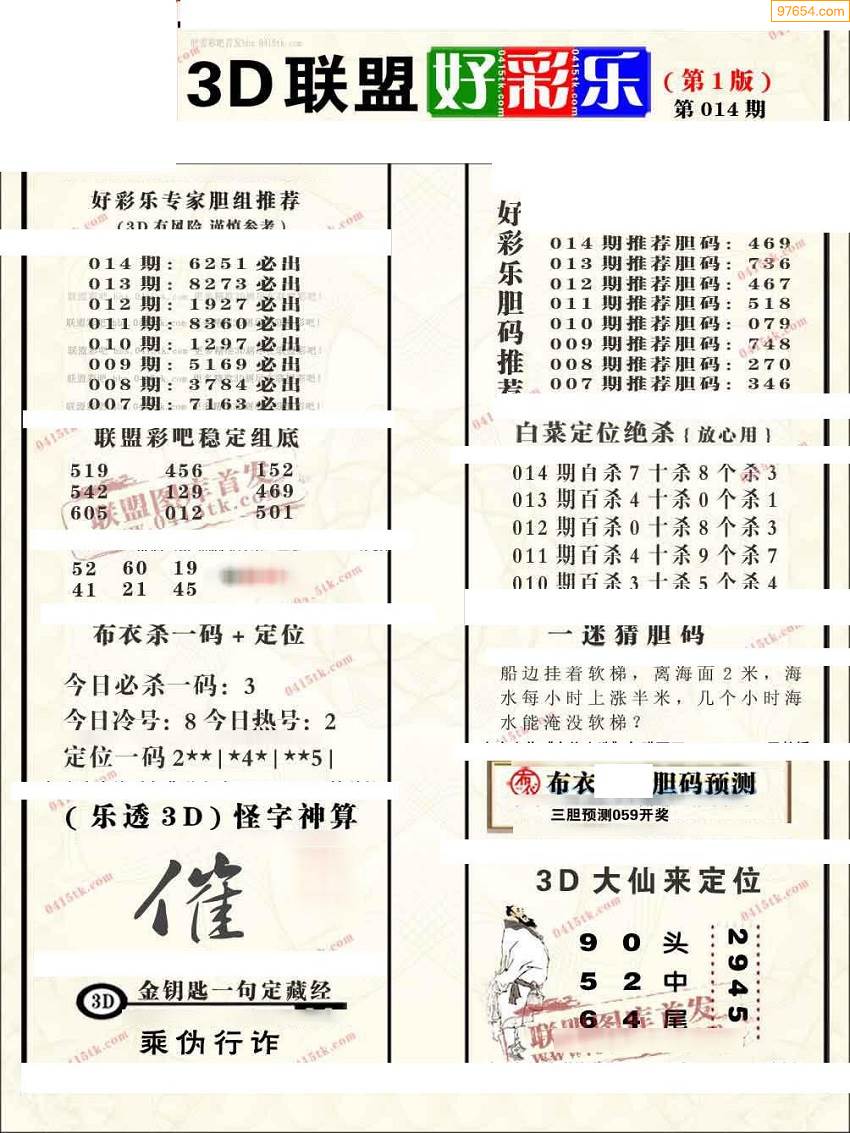 97654.com
3D联盟好彩乐
(第1版)
第014期
好彩乐专家胆组推荐
(3D有风险 谨慎参考)
014期：6251必出
013期：8273必出
012期：1927必出
011期：8360必出
010期：1297必出
009期：5169必出
008期：3784必出
007期：7163必出
联盟彩吧稳定组底
519 456 152
542 129 469
605 012 501
52 60 19
41 21 45
布衣杀一码+定位
今日必杀一码：3
今日冷号：8 今日热号：2
定位一码2**|*4*|**5|
(乐透3D)怪字神算
催
3D
金钥匙一句定藏经
乘伪行诈
好彩乐胆码推荐
014期推荐胆码：469
013期推荐胆码：736
012期推荐胆码：467
011期推荐胆码：518
010期推荐胆码：079
009期推荐胆码：748
008期推荐胆码：270
007期推荐胆码：346
白菜定位绝杀{放心用}
014期百杀7十杀8个杀3
013期百杀4十杀0个杀1
012期百杀0十杀8个杀3
011期百杀4十杀9个杀7
010期百杀3十杀5个杀4
一迷猜胆码
船边挂着软梯，离海面2米，海
水每小时上涨半米，几个小时海
水能淹没软梯？
布衣 胆码预测
三胆预测059开奖
3D大仙来定位
9 0 头
5 2 中
6 4 尾
2945
联盟图库首发
0415tk.com